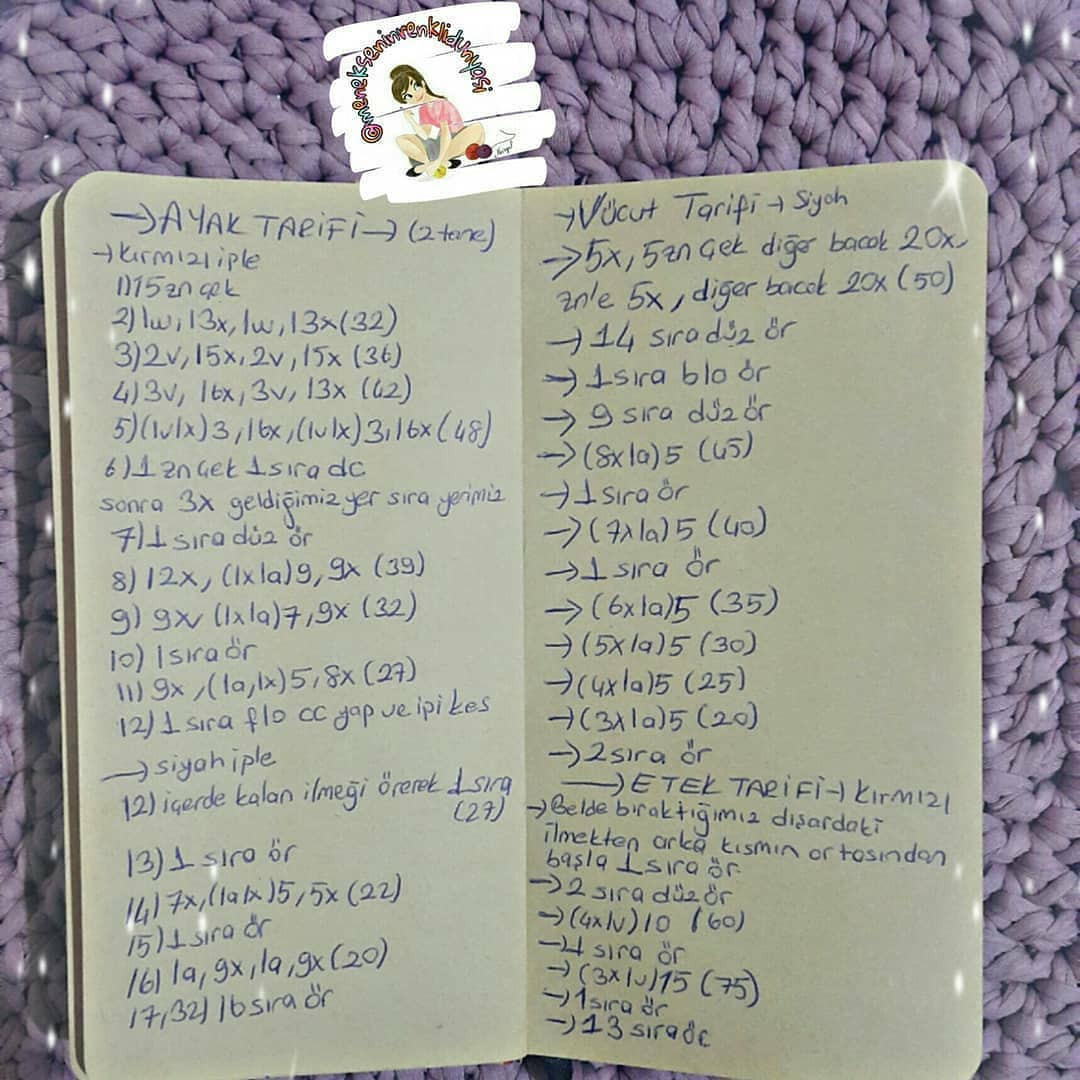 @menekseninrenklidunyasi
→AYAK TARİFİ→ (2 tane)
→kırmızı iple
1)15 zn çek
2)1w,13x,1w,13x(32)
3)2v,15x,2v,15x (36)
4)3v, 16x,3v,13x (42)
5)(1v1x)3,16x,(1v1x)3,16x(48)
6)1 zn çek 1 sıra dc
sonra 3x geldiğimiz yer sıra yerimiz
7)1 sıra düz ör
8)12x, (1x1a)9,9x (39)
9) 9x, (1x1a)7,9x (32)
10) 1 sıra ör
11) 9x,(1a,1x)5,8x(27)
12)1 sıra flo cc yap ve ipi kes
→siyah iple
12) içerde kalan ilmeği örerek 1 sıra
(27)
13) 1 sıra ör
14) 7x,(1a1x)5,5x(22)
15)1 sıra ör
16) 1a,9x,1a,9x(20)
17,32) 16 sıra ör
→Vücut Tarifi→ Siyah
→5x,5zn çek diğer bacak 20x,
zn'e 5x, diğer bacak 20x (50)
→14 sıra düz ör
→1 sıra blo ör
→ 9 sıra düz ör
→(8x1a)5 (45)
→1 sıra ör
→(7x1a)5 (40)
→1 sıra ör
→(6x1a)5 (35)
→(5x1a)5 (30)
→(4x1a)5 (25)
→(3x1a)5 (20)
→2 sıra ör
→ETEK TARİFİ→ kırmızı
→Belde bıraktığımız dışardaki
ilmekten arka kısmın ortasından
başla 1 sıra ör.
→2 sıra düz ör
→(4x1v)10 (60)
→1 sıra ör
→(3x1v)15 (75)
→1 sıra ör
→13 sıra dc